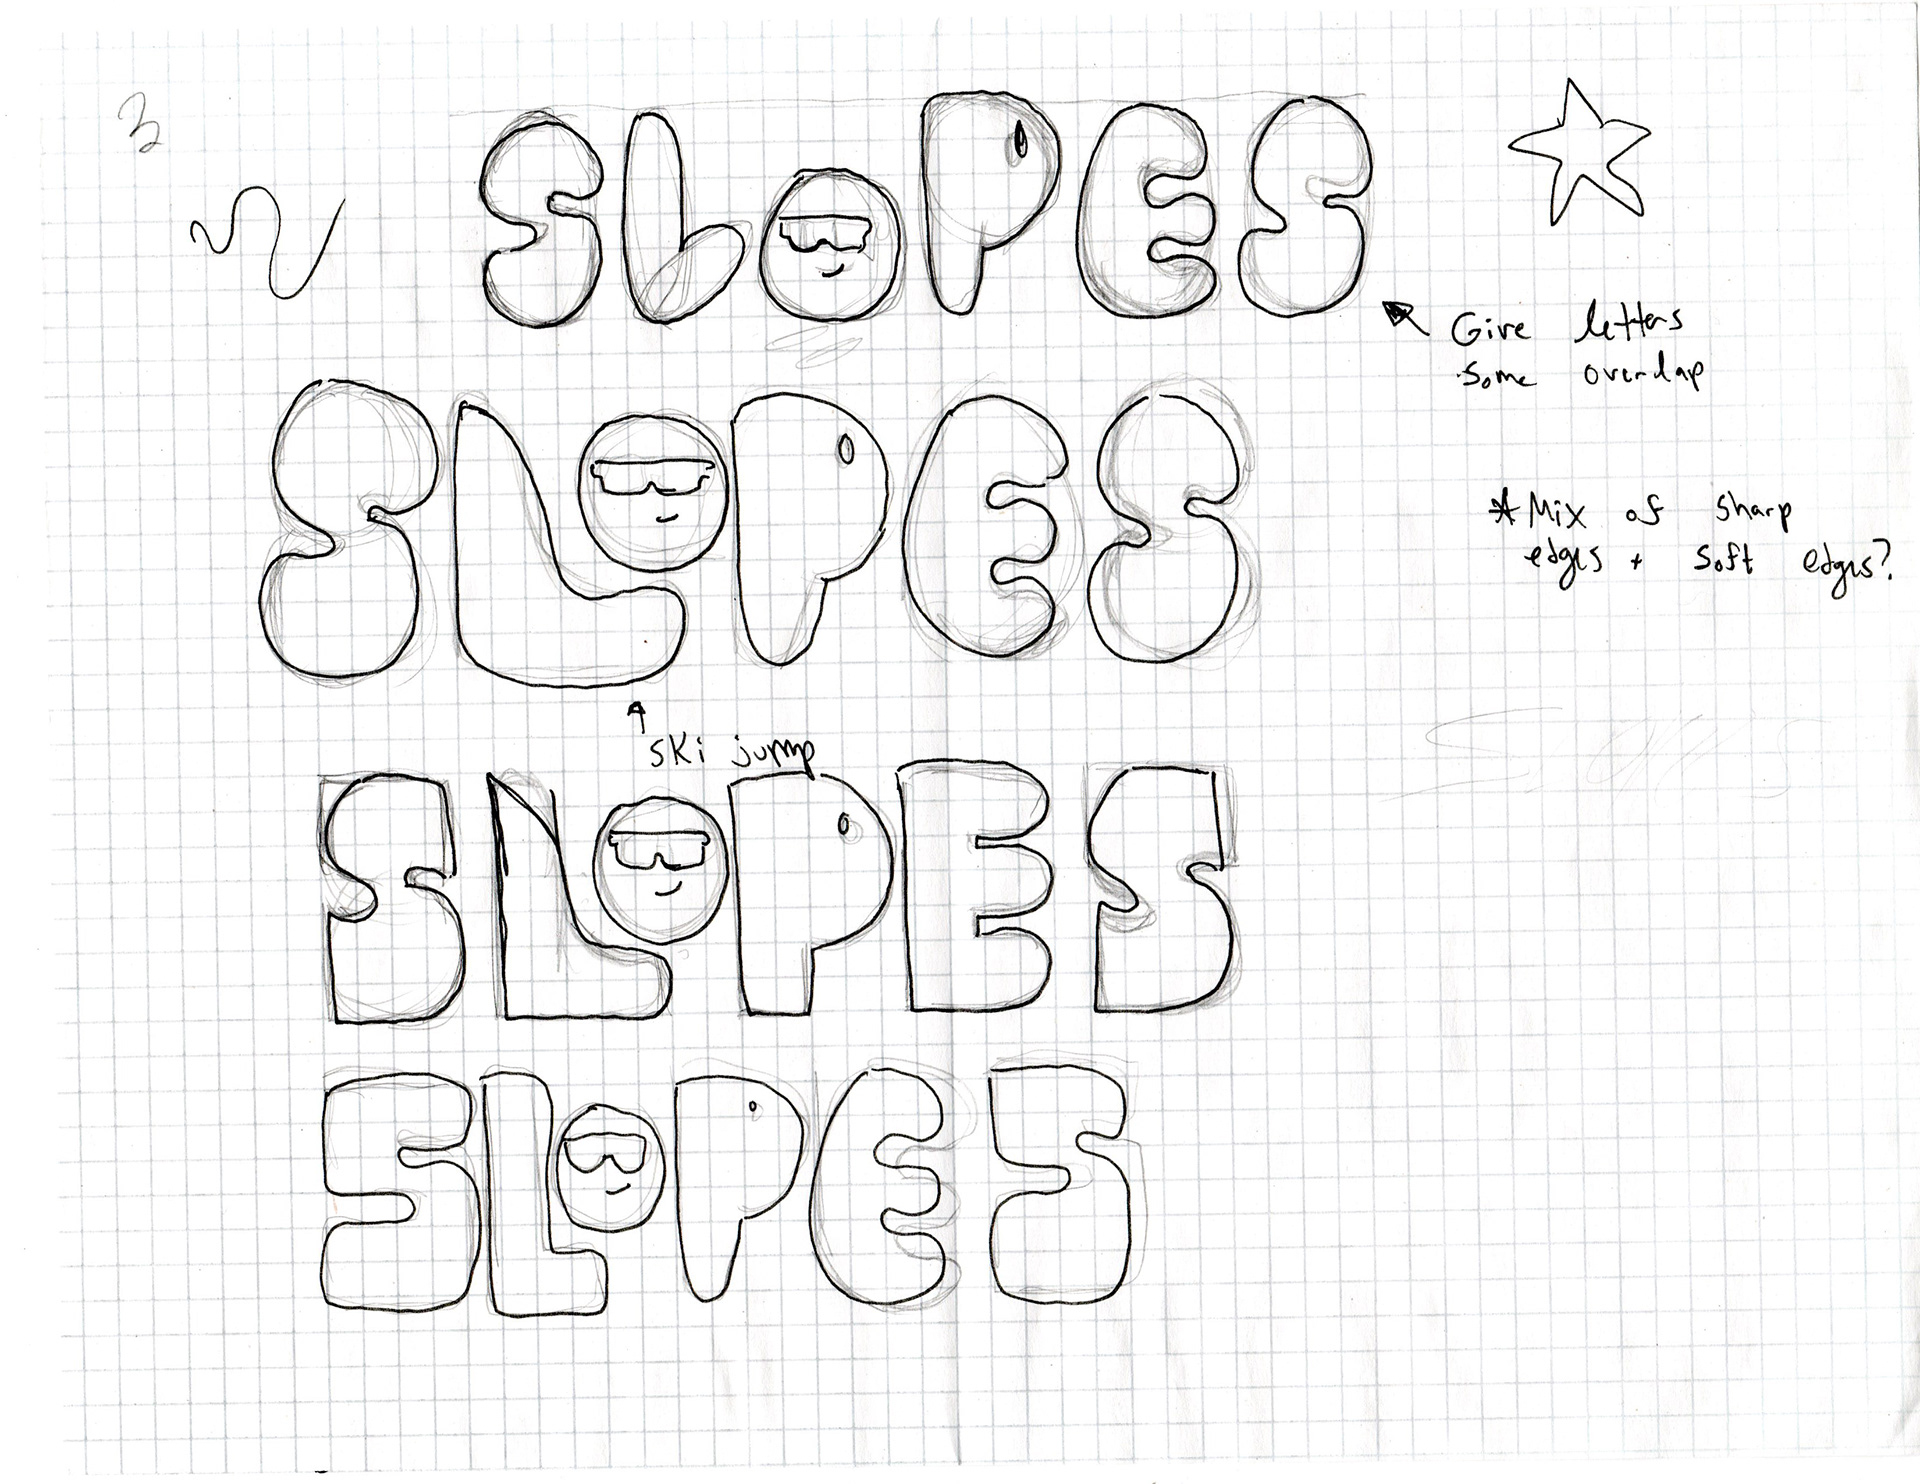 3
SLOPES
Give letters
some overlap
SLOPES
*Mix of sharp
edges + soft edges?
ski jump
SLOPES
SLOPES